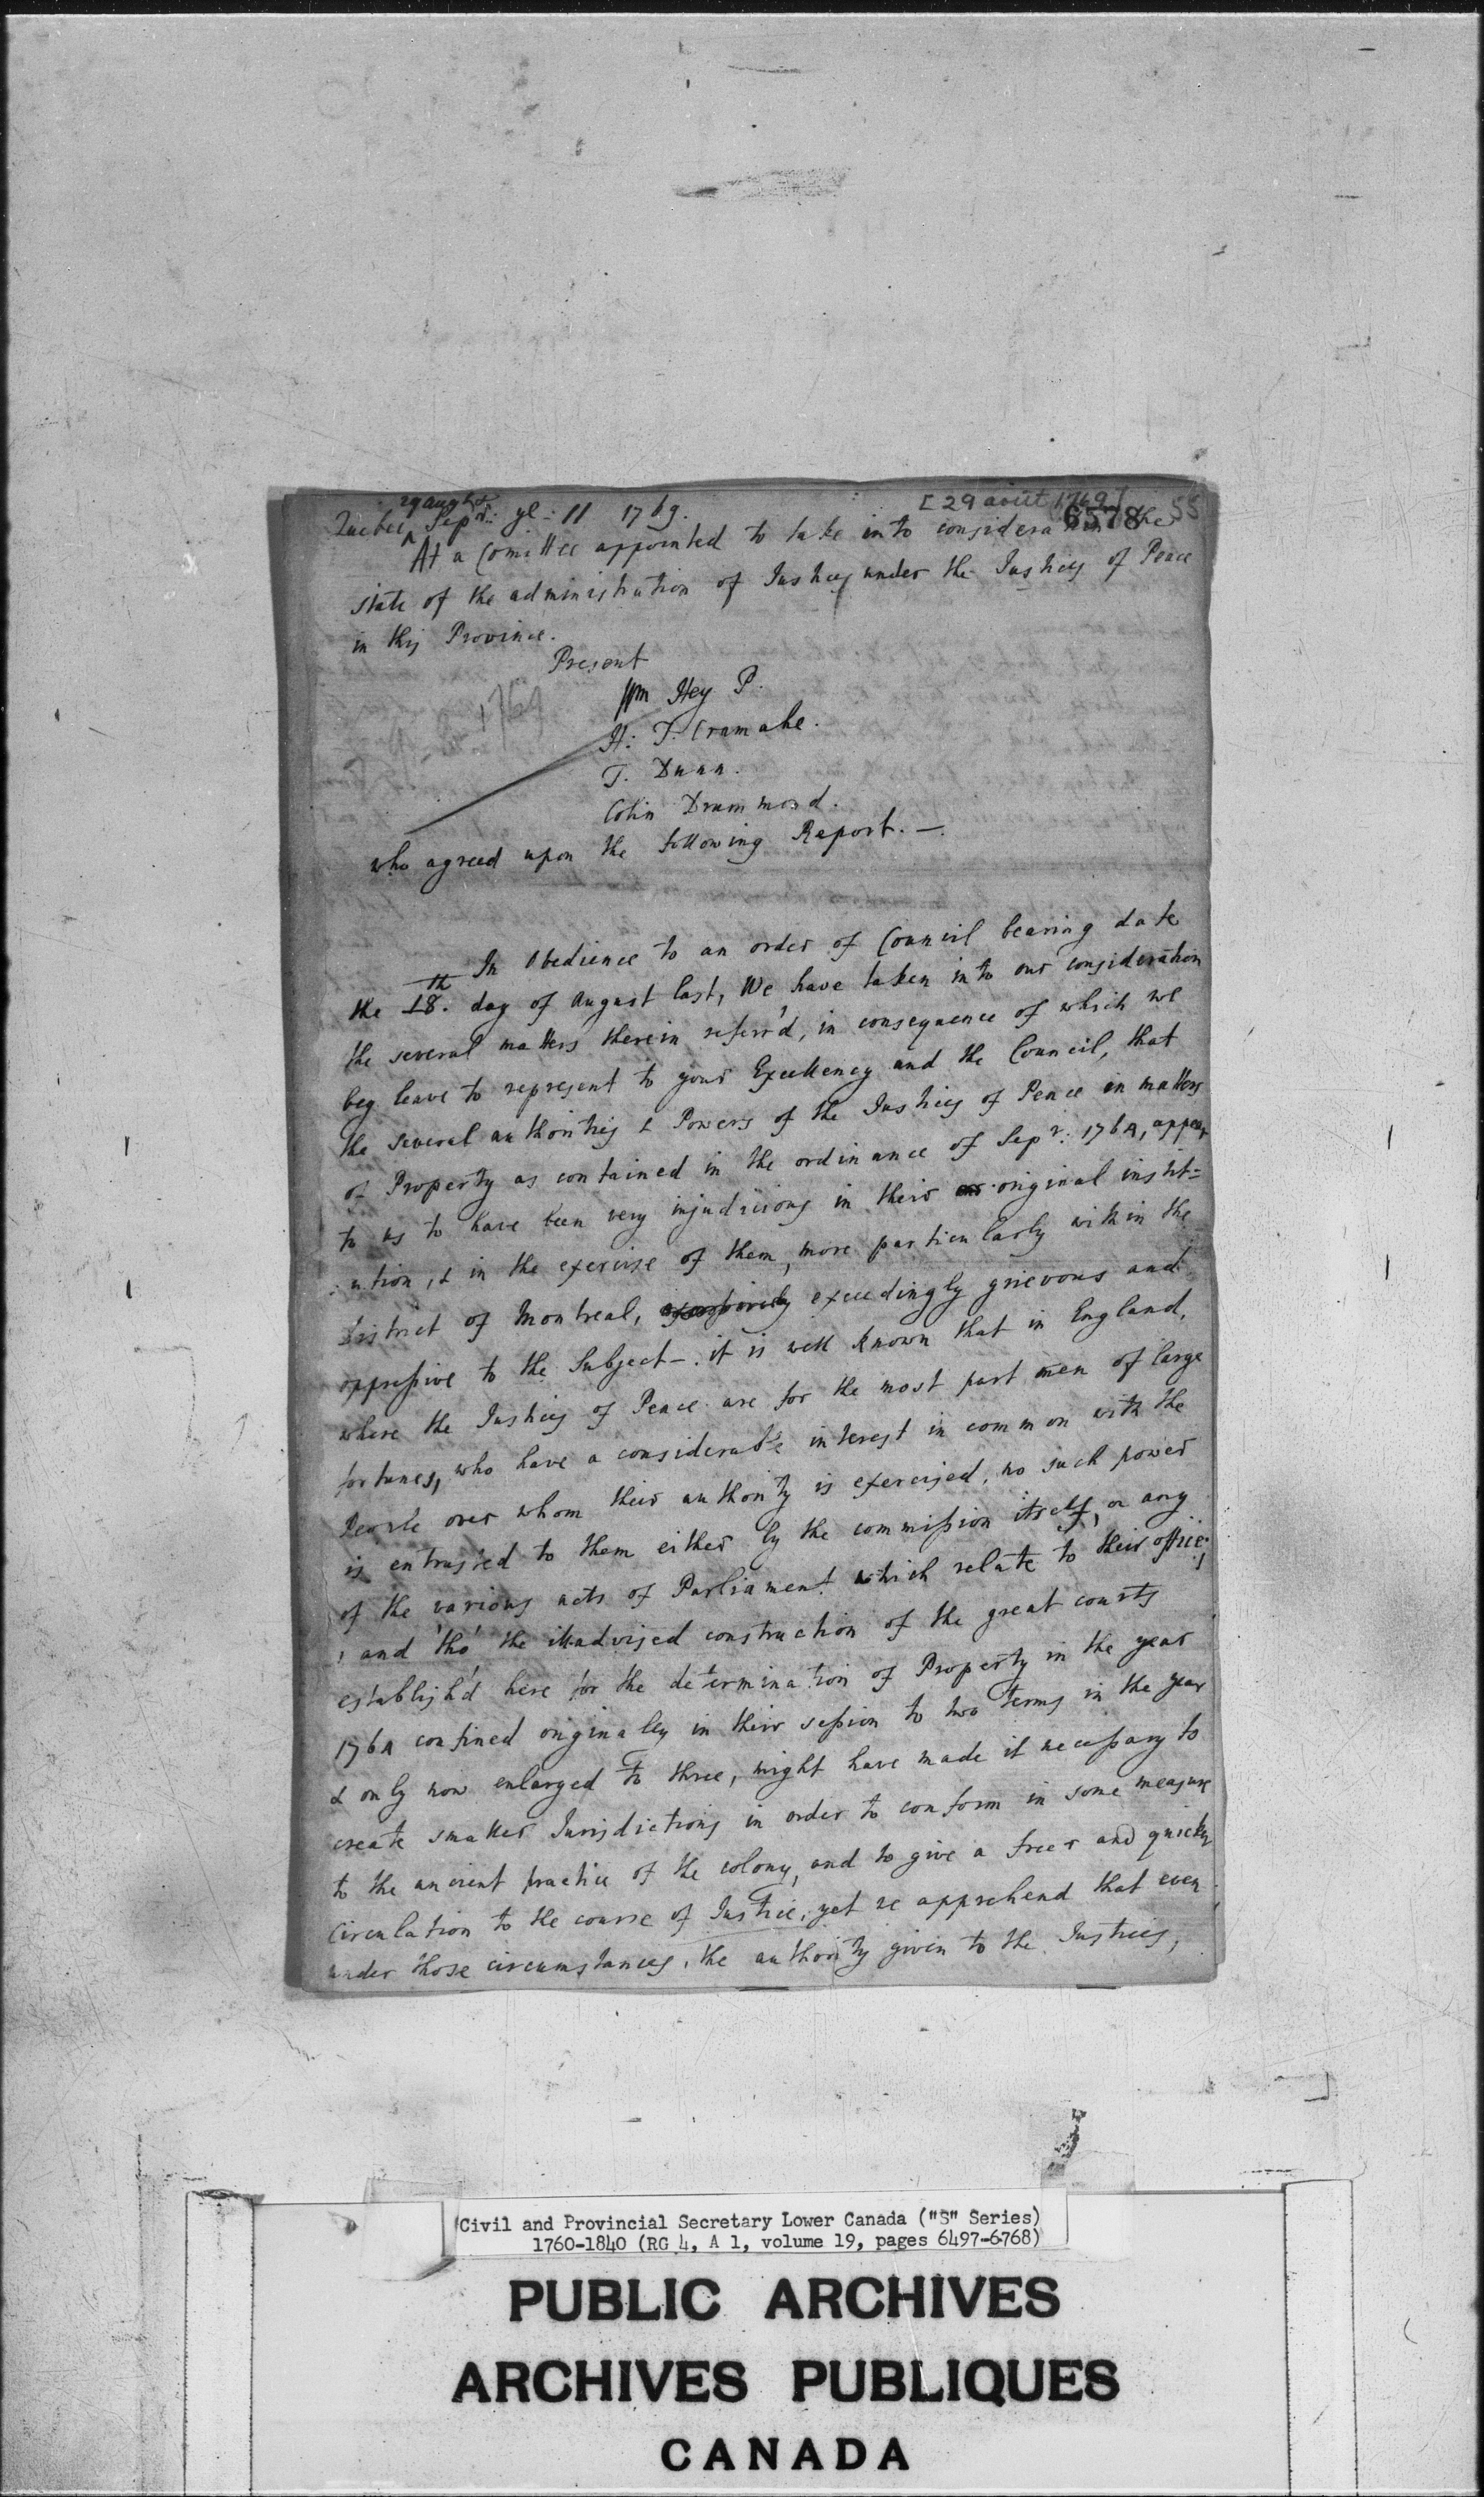 29 augst
[29 août 1769]
6578
55
Quebec ^ Sepr: ye: 11 1769.
At a Comittee appointed to take into consideration the
state of the administration of Justice under the Justices of Peace
in this Province.
Present
Wm Hey P.
H: T. Cramahe.
T. Dunn.
Colin Drummond.
1769
who agreed upon the following Report. —
In Obedience to an order of Council bearing date
the 18th. day of August last, We have taken into our consideration
the several matters therein referr'd, in consequence of which we
beg leave to represent to your Excellency and the Council, that
the several authorities & Powers of the Justices of Peace in matters
of Property as contained in the ordinance of Sepr: 1764, appear
to us to have been very injudicious in their original instit=
:ution, & in the exercise of them, more particularly within the
District of Montreal, excessively exceedingly grievous and
oppressive to the Subject —. it is well known that in England,
where the Justices of Peace are for the most part men of large
fortunes, who have a considerable interest in common with the
People over whom their authority is exercised, no such power
is entrusted to them either by the commission itself, or any
of the various acts of Parliament which relate to their office;
, and tho' the illadvised construction of the great courts
establish'd here for the determination of Property in the year
1764 confined originally in their session to two terms in the year
& only now enlarged to three, might have made it necessary to
create smaller Jurisdictions in order to conform in some measure
to the ancient practice of the colony, and to give a freer and quicker
circulation to the course of Justice, yet we apprehend that even
under those circumstances, the authority given to the Justices,
Civil and Provincial Secretary Lower Canada ("S" Series)
1760-1840 (RG 4, A 1, volume 19, pages 6497-6768)
PUBLIC ARCHIVES
ARCHIVES PUBLIQUES
CANADA